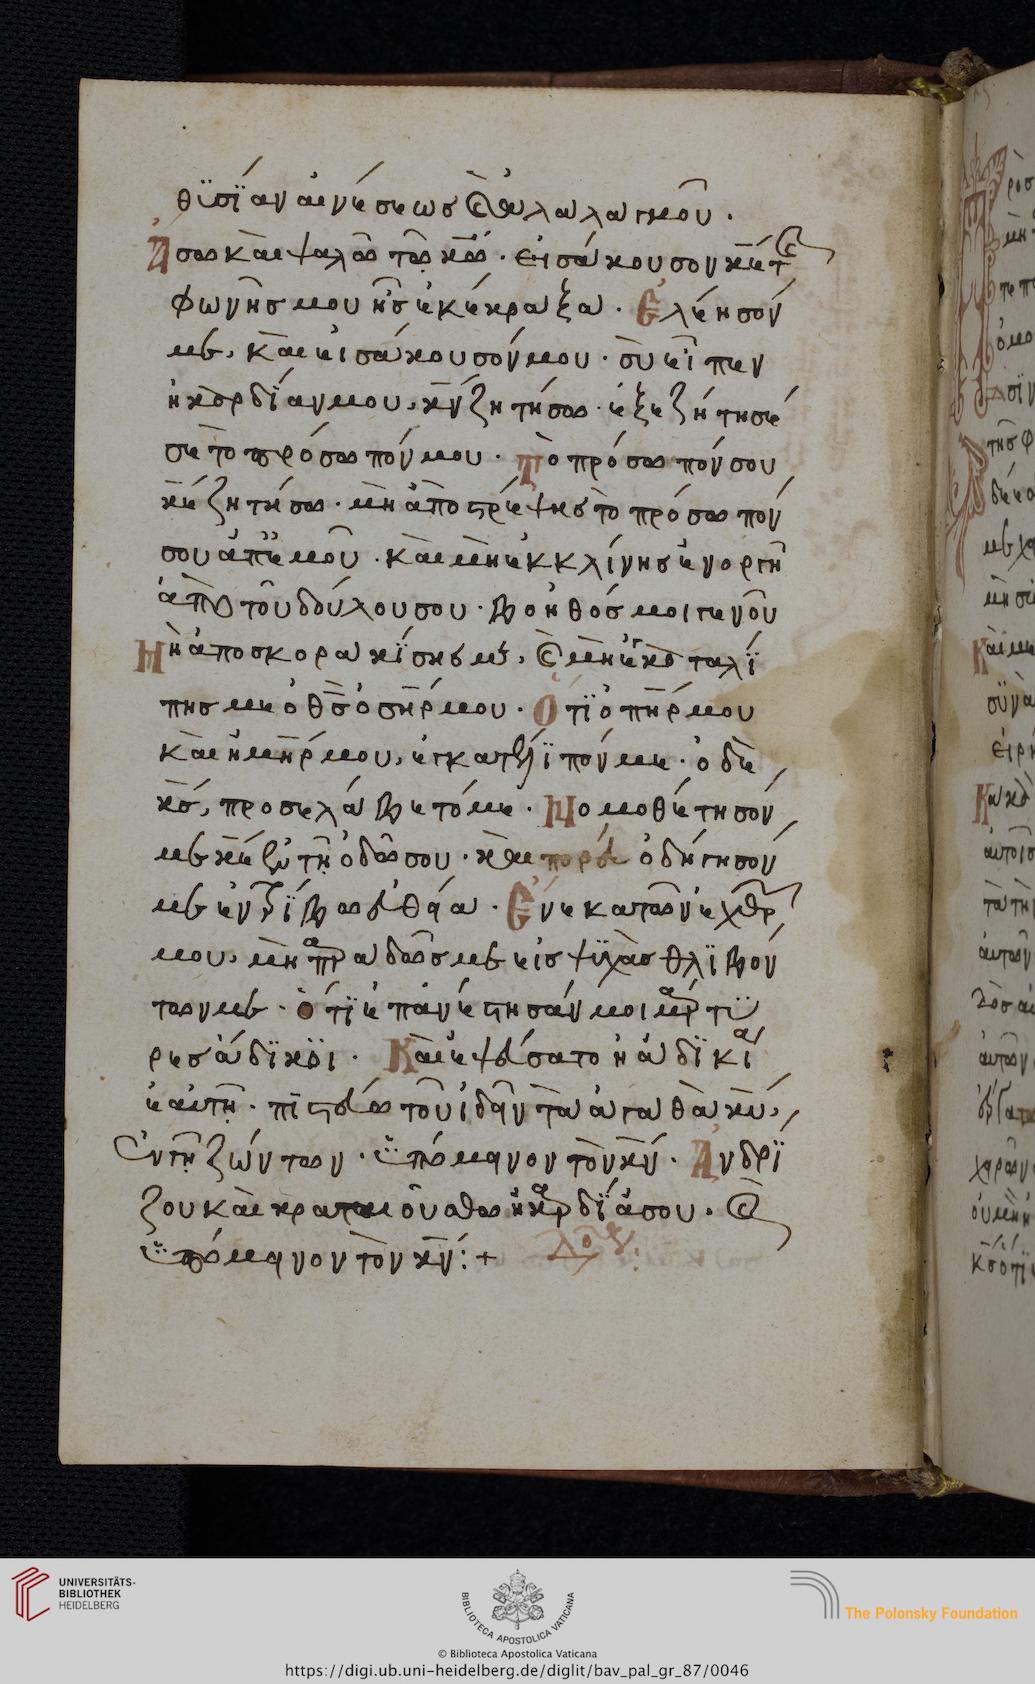 θϋσίαν αινέσεως καὶ ἀλαλαγμοῦ.
Ἄσω καὶ ψαλῶ τῶ κῶ. εἰσάκουσον κε τῆς
φωνῆς μου ἧς ἐκέκραξα. Ἐλέησόν
με, καὶ εἰσάκουσόν μου. σὺ εἶπεν
ἡ καρδίαν μου, κν ζητήσω. ἐξεζήτησέ
σε τὸ πρόσωπόν μου. Τὸ πρόσωπόν σου
κε ζητήσω. μὴ ἀποστρέψης τὸ πρόσωπόν
σου ἀπ' ἐμοῦ. καὶ μὴ ἐκκλίνης ἐν ὀργῆ
ἀπὸ τοῦ δούλου σου. βοηθός μοι γενοῦ
Μὴ ἀποσκορακίσης με, καὶ μὴ ἐγκαταλί
πης με ὁ θς ὁ σηρ μου. Ὅτι ὁ πηρ μου
καὶ ἡ μηρ μου, ἐγκατέλιπόν με. ὁ δὲ
κς, προσελάβετό με. Νομοθέτησόν
με κε ἐν τῆ ὁδῶ σου. καὶ ὁδήγησόν
με ἐν τρίβω εὐθεία. Ἕνεκα τῶν ἐχθρῶν
μου, μὴ παραδῶς με εἰς ψυχὰς θλιβόν
των με. ὅτι ἐπανέστησάν μοι μάρτϋ
ρες ἄδικοι. Καὶ ἐψεύσατο ἡ ἀδικία
ἑαυτῆ. πιστεύω τοῦ ἰδεῖν τὰ ἀγαθὰ κυ,
ἐν γῆ ζώντων. ὑπόμεινον τὸν κν. Ἀνδρί
ζου καὶ κραταιούσθω ἡ καρδία σου. καὶ
ὑπόμεινον τὸν κν: +
UNIVERSITÄTS-
BIBLIOTHEK
HEIDELBERG
BIBLIOTECA APOSTOLICA VATICANA
The Polonsky Foundation
© Biblioteca Apostolica Vaticana
https://digi.ub.uni-heidelberg.de/diglit/bav_pal_gr_87/0046